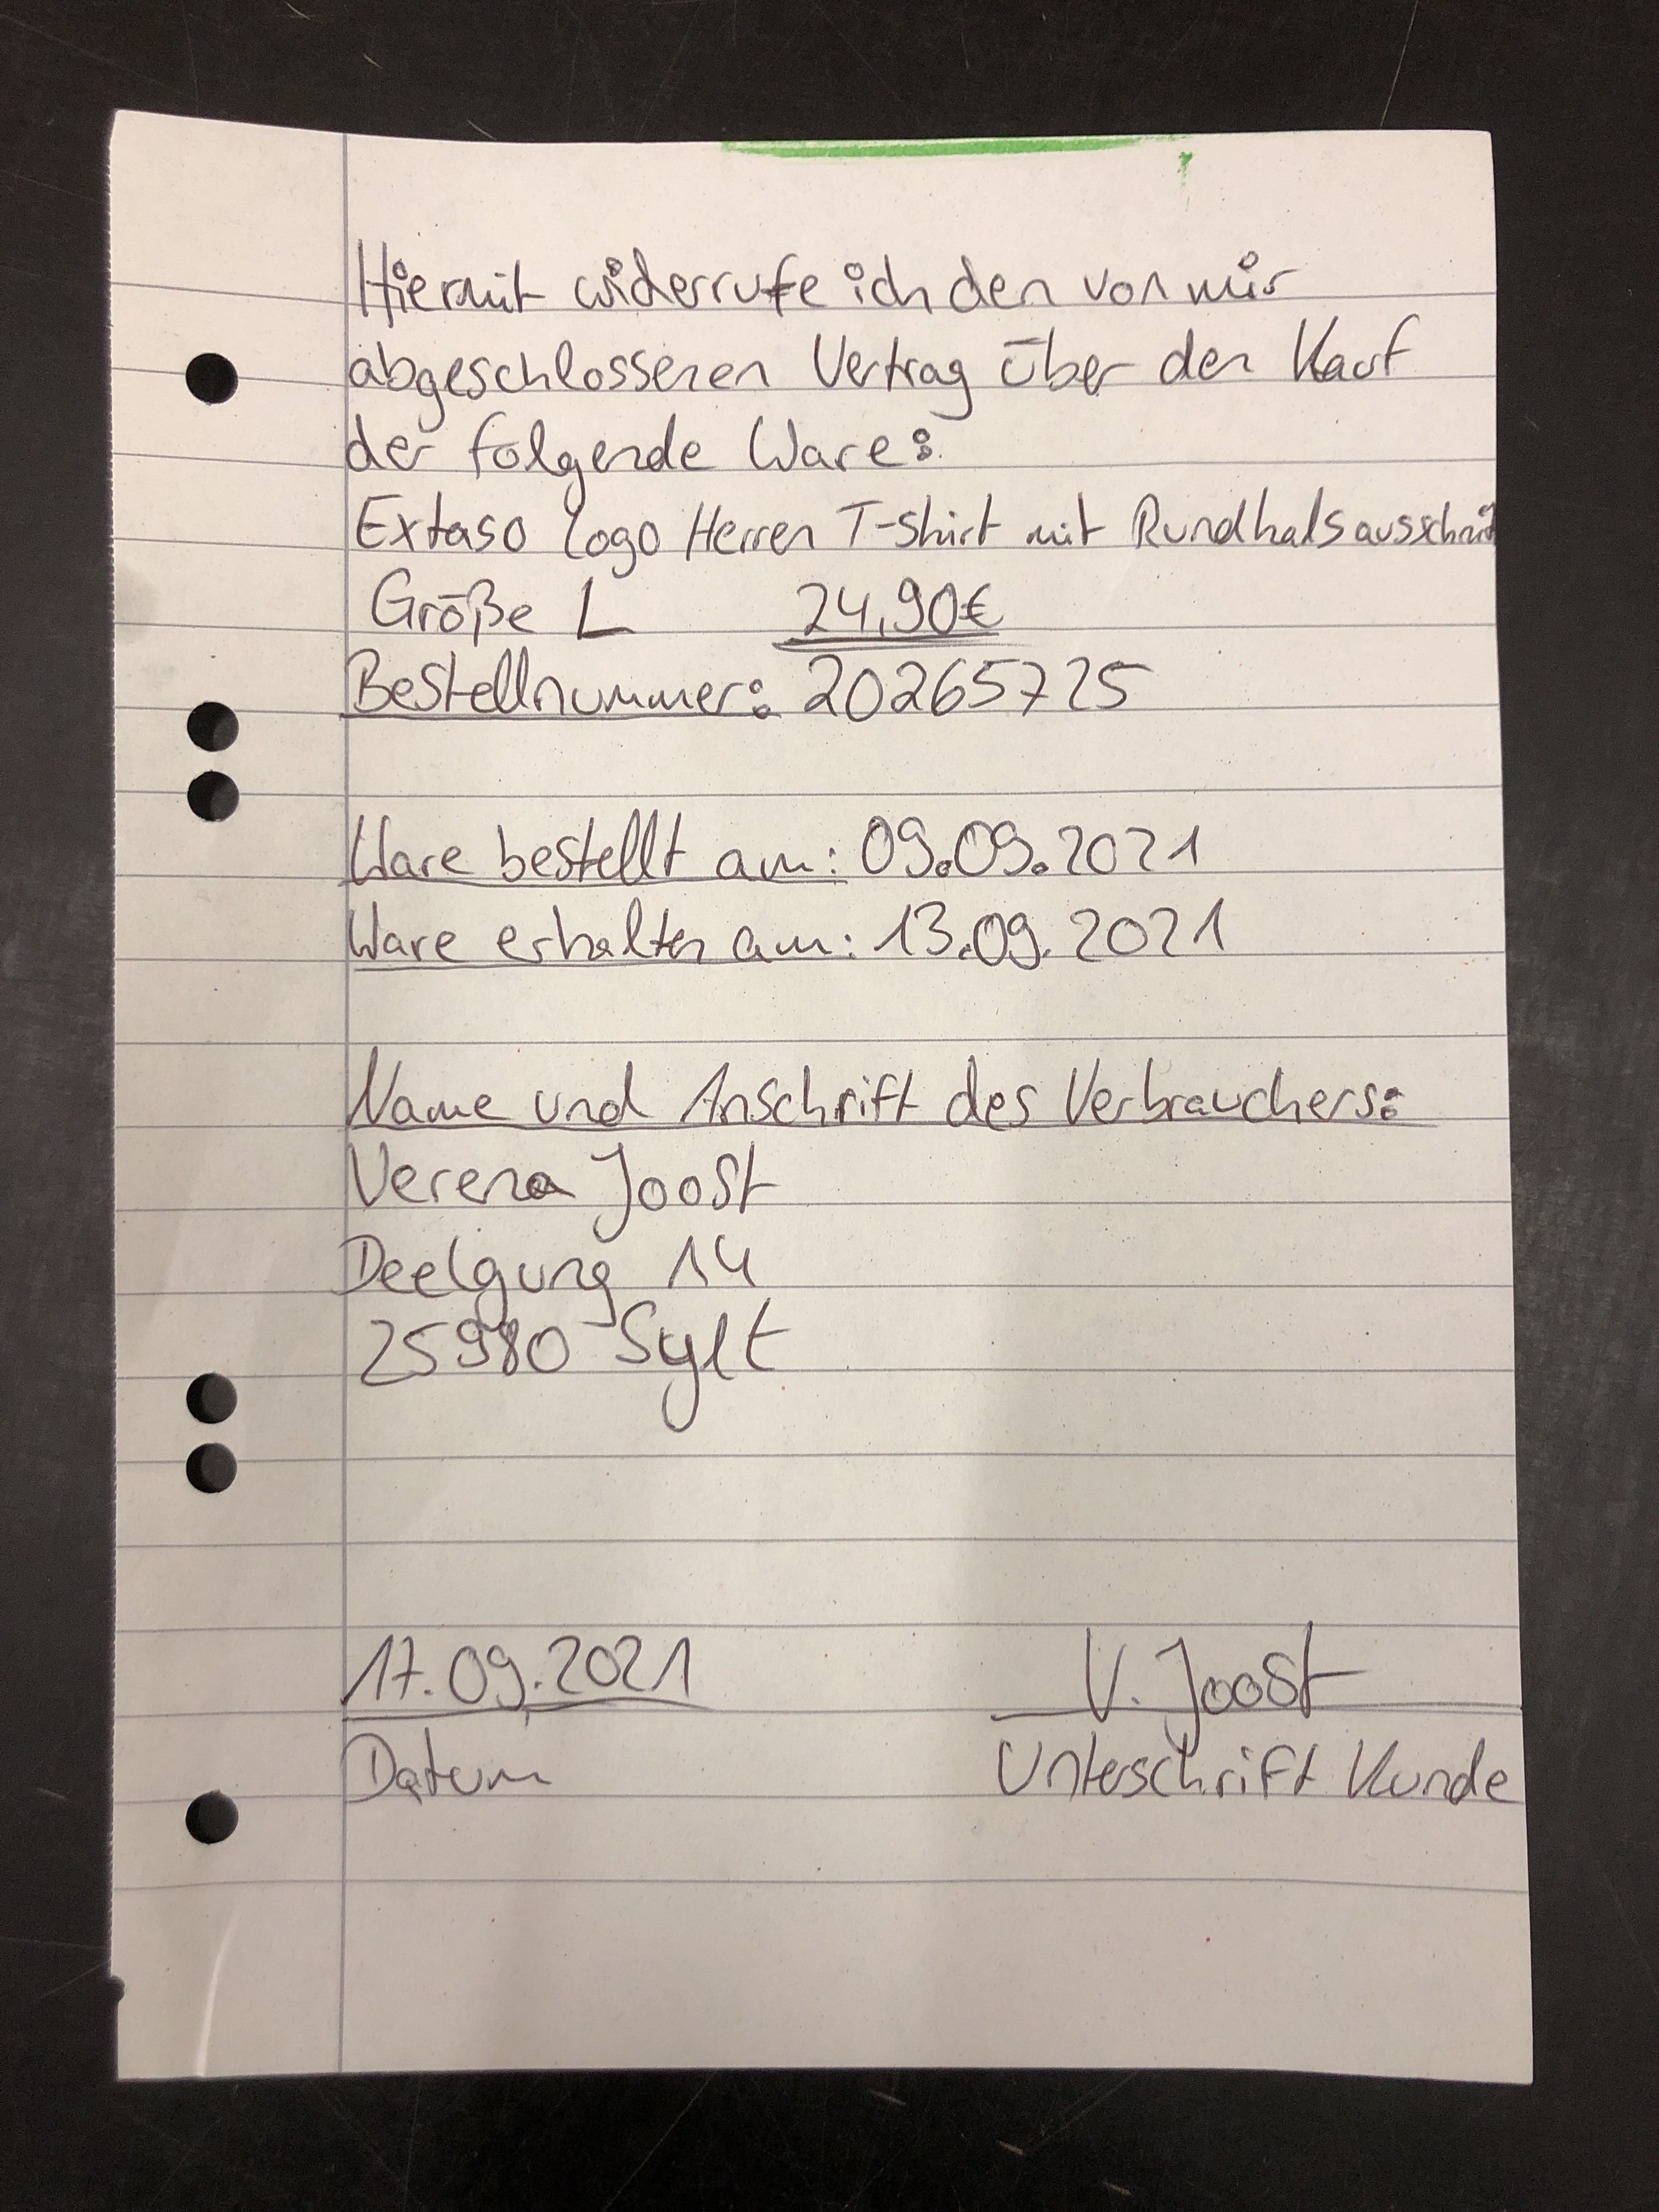 Hiermit widerrufe ich den von mir
abgeschlossenen Vertrag über den Kauf
der folgende Ware:
Extaso Logo Herren T-Shirt mit Rundhalsausschnitt
Größe L 24,90€
Bestellnummer: 20265725
Ware bestellt am: 09.09.2021
Ware erhalten am: 13.09.2021
Name und Anschrift des Verbrauchers:
Verena Joost
Deelgung 14
25980 Sylt
17.09.2021 V. Joost
Datum Unterschrift Kunde